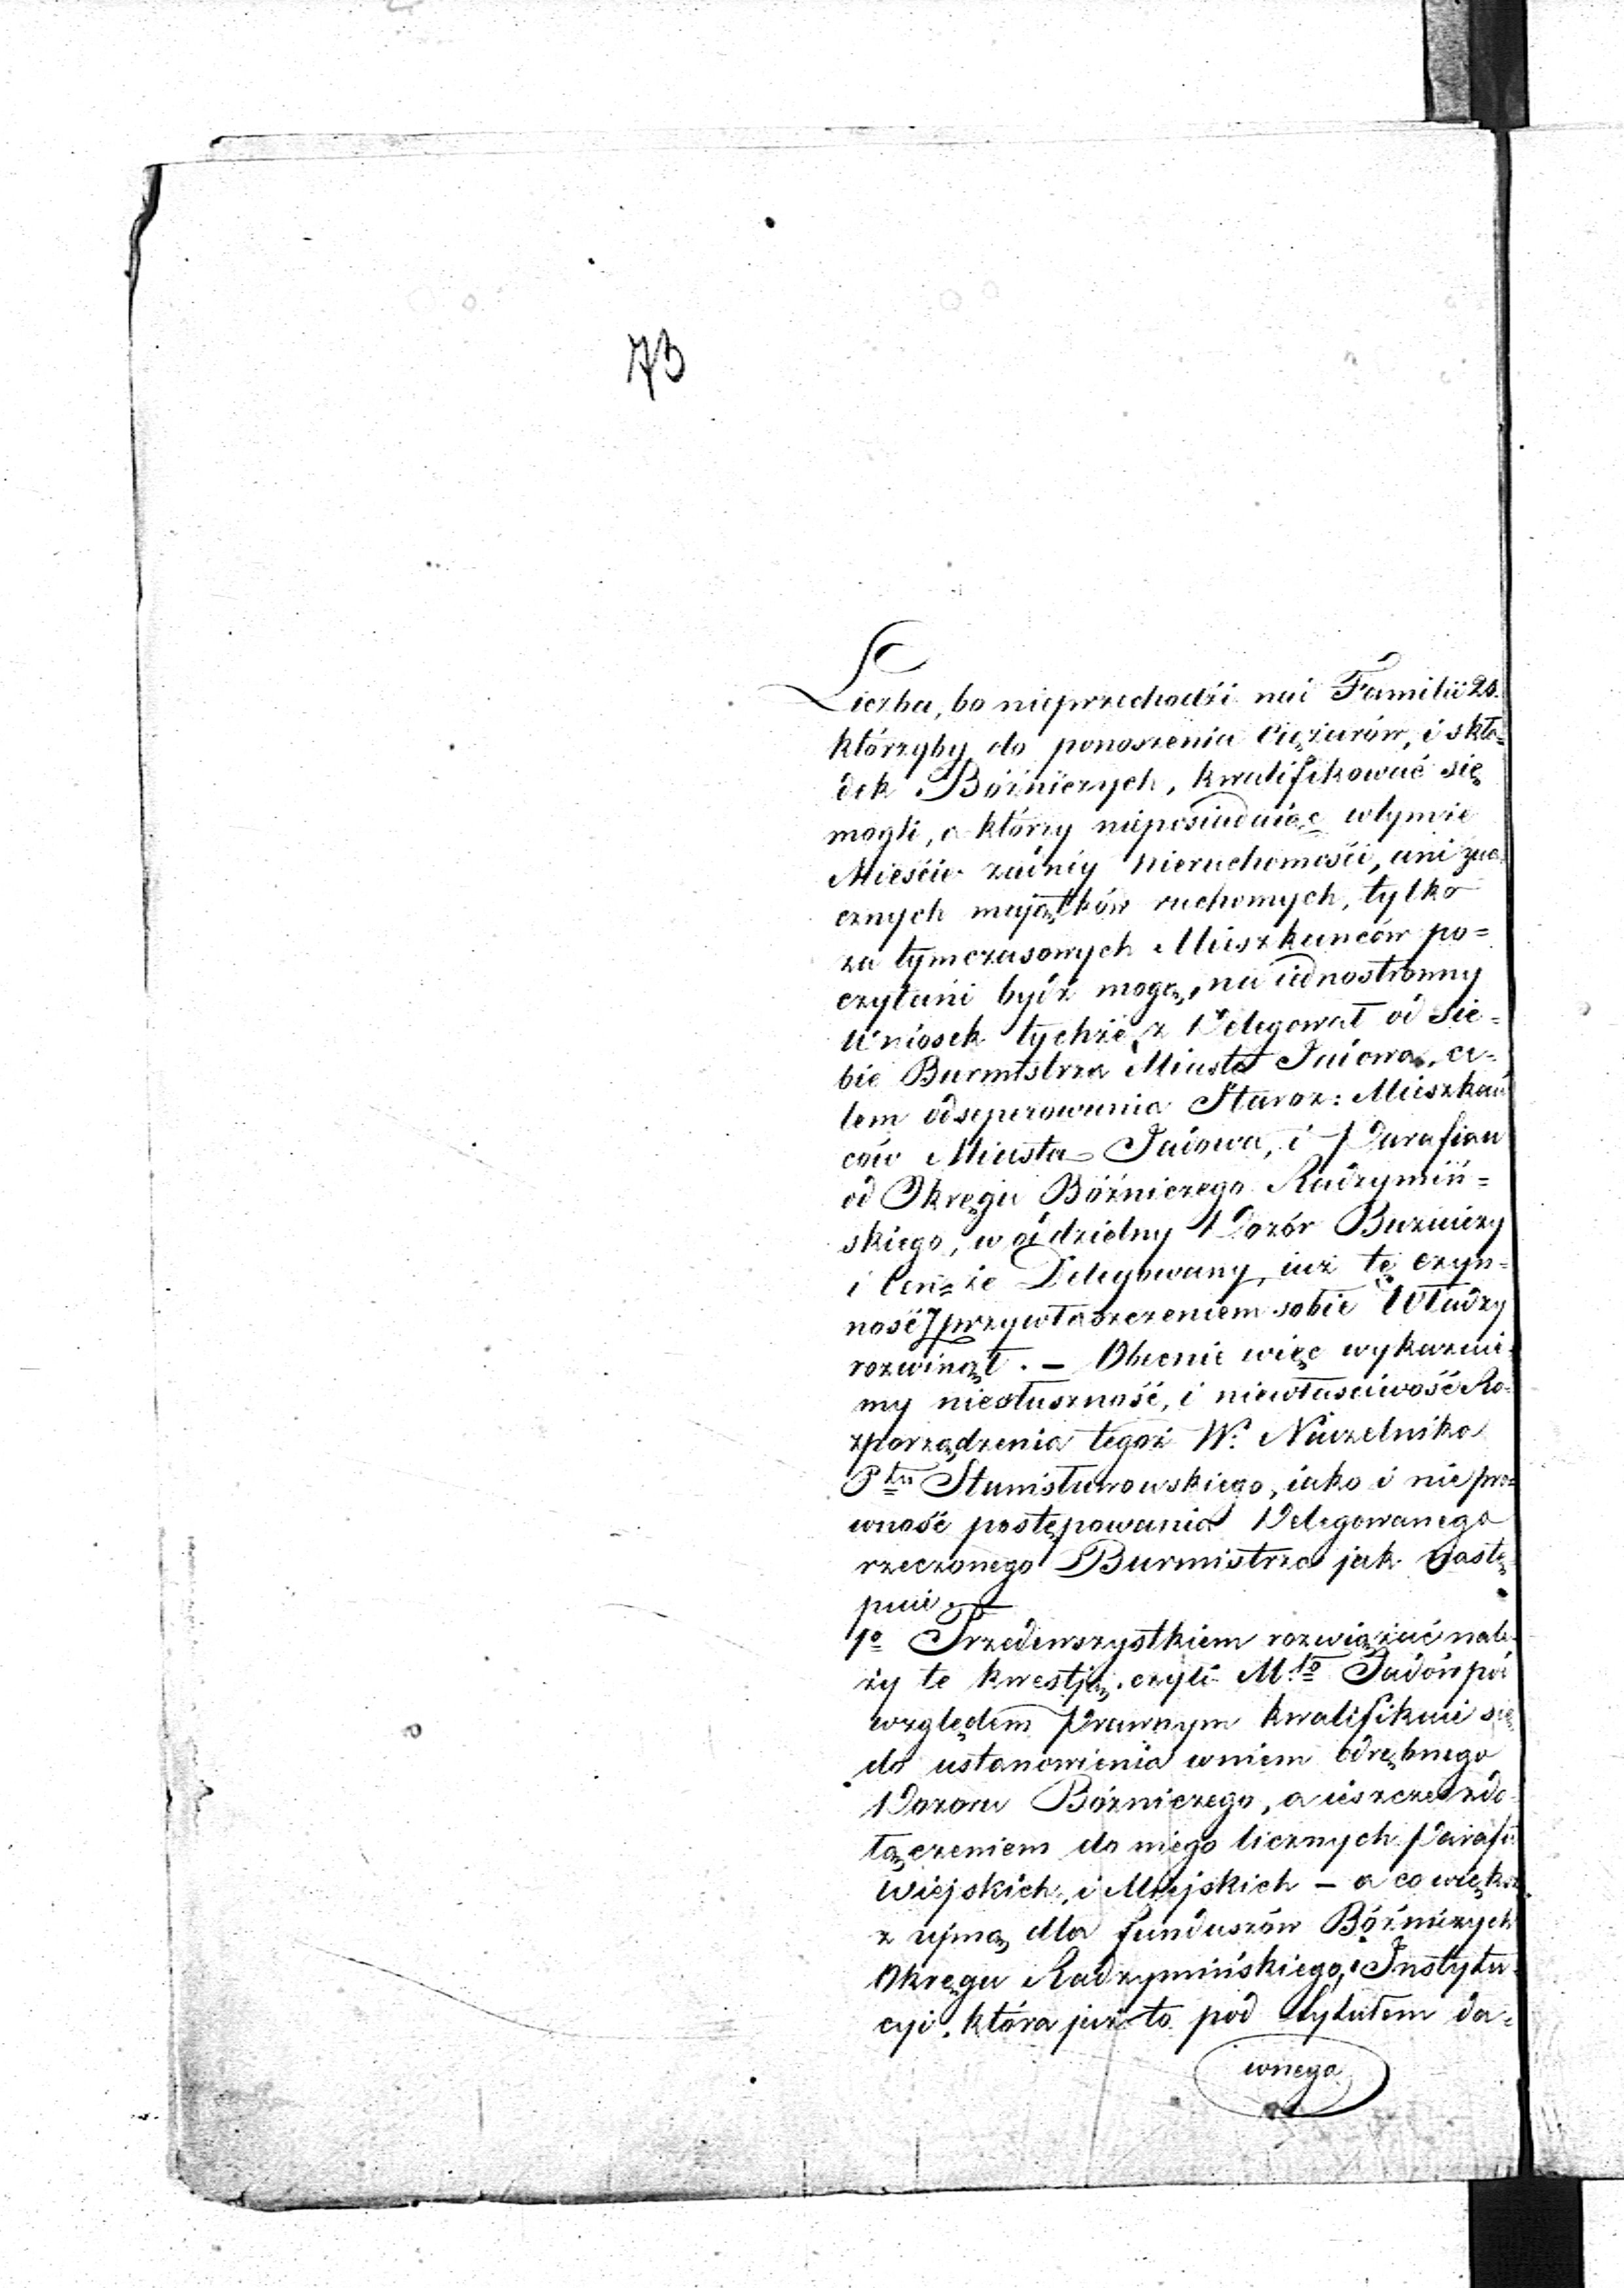 73
Liczba, bo nieprzechodzi nai Familii 20.
którzyby do ponoszenia Ciężarów, i skła=
dek Bóżniczych, kwalifikować się
mogli, a którzy nieposiadaiąc wtymże
Mieście żadnéy Nieruchomości, ani zna
cznych majątków ruchomych, tylko
za tymczasowych Mieszkańców po=
czytani bydź mogą, na iednostronny
Wniosek tychże, Delegował od sie=
bie Burmistrza Miasta Jadowa, ce=
lem odseperowania Staroz: Mieszkań
ców Miasta Jadowa, i Parafian
od Okręgu Bóżniczego Radzymiń=
skiego, w oddzielny Dozór Bużniczy
i Ten=że Delegowany, iuż tę czyn=
ność z przywłaszczeniem sobie Władzy
rozwinął. — Obecnie więc wykażemi
my niesłuszność, i niewłaściwość Ro=
zporządzenia tegoż W. Naczelnika
Ptu Stanisławowskiego, iako i niepra=
wność postępowania Delegowanego
rzeczonego Burmistrza jak nastę
puie.
1o Przedewszystkiem rozwiązać nale
ży te kwestją, czyli Mto Jadów pod
względem Prawnym kwalifikuie się
do ustanowienia wniem odrębnego
Dozoru Bóżniczego, a ieszcze z do
łączeniem do niego licznych Parafii
Wiejskich, i Miejskich — a co większa
z ujmą dla funduszów Bóżniczych
Okręgu Radzymińskiego, Instytu=
cyi, która już to pod tytułem da=
wnego